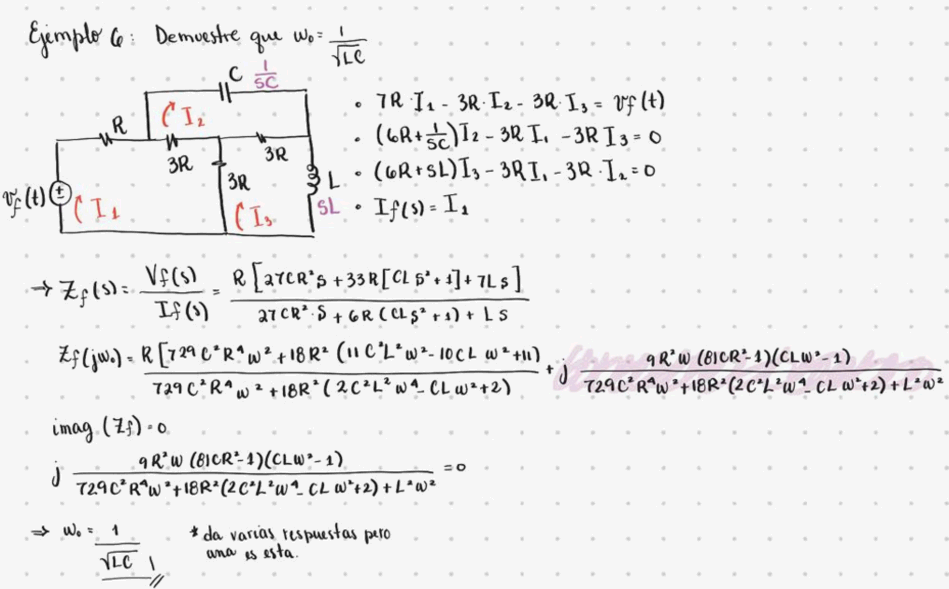 Ejemplo 6: Demuestre que ω₀ = 1/√LC
C 1/SC
R
I₂
3R
3R
3R
L
SL
v_f(t)
I₁
I₃
• 7R·I₁ - 3R·I₂ - 3R·I₃ = v_f(t)
• (6R + 1/SC)I₂ - 3R I₁ - 3R I₃ = 0
• (6R + SL)I₃ - 3R I₁ - 3R·I₂ = 0
• I_f(s) = I₁
→ Z_f(s) = V_f(s)/I_f(s) = R[27CR²S + 33R[CLS² + 1] + 7LS] / 27CR²·S + 6R(CLS² + 1) + LS
Z_f(jω₀) = R[729C²R⁴ω² + 18R²(11C²L²ω² - 10CLω² + 11) / 729C²R⁴ω² + 18R²(2C²L²ω⁴ - CLω² + 2) + j 9R²ω(81CR² - 1)(CLω² - 1) / 729C²R⁴ω² + 18R²(2C²L²ω⁴ - CLω² + 2) + L²ω²
imag.(Z_f) = 0
j 9R²ω(81CR² - 1)(CLω² - 1) / 729C²R⁴ω² + 18R²(2C²L²ω⁴ - CLω² + 2) + L²ω² = 0
⇒ ω₀ = 1/√LC
* da varias respuestas pero
una es esta.